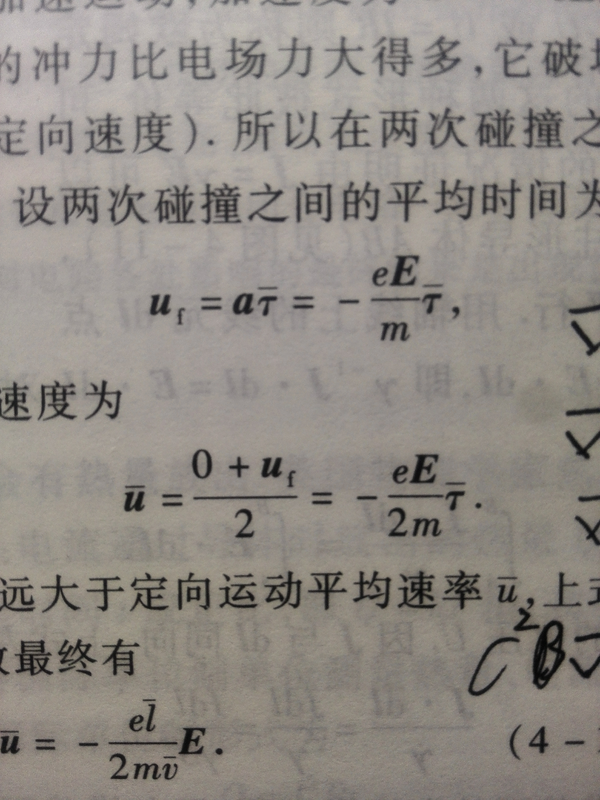 的冲力比电场力大得多,它破
定向速度).所以在两次碰撞之
设两次碰撞之间的平均时间为
u_f = aτ̄ = −(eE/m)τ̄,
速度为
ū = (0 + u_f)/2 = −(eE/2m)τ̄.
远大于定向运动平均速率 ū,上式
最终有
ū = −(el̄/2mv̄)E. (4 −